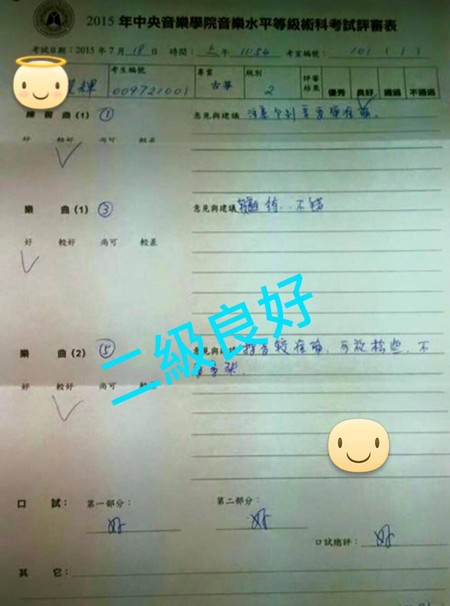 2015 年中央音樂學院音樂水平等級術科考試評審表
考試日期：2015 年 7 月 18 日 時間：上午 11:54 考室編號：101 ( 1 )
輝 考生編號 專業 級別 評審結果 優秀 良好 通過 不通過
009721001 古箏 2
練習曲(1) ① 意見與建議 注意个别音要彈准确。
好 較好 尚可 較差
樂 曲(1) ③ 意見與建議 不错
好 較好 尚可 較差
二級良好
樂 曲(2) ⑤ 意見與建議 指音较准确，可放松些，不
好 較好 尚可 較差
口 試： 第一部分： 好 第二部分： 好
口試總評： 好
其 它：